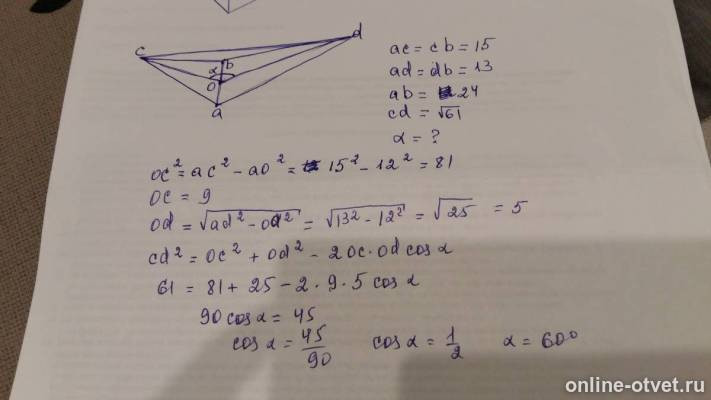 c
d
b
α
o
a
ac = cb = 15
ad = db = 13
ab = 24
cd = √61
α = ?
oc² = ac² - ao² = 15² - 12² = 81
oc = 9
od = √ad² - oa² = √13² - 12² = √25 = 5
cd² = oc² + od² - 2oc·od cos α
61 = 81 + 25 - 2·9·5 cos α
90 cos α = 45
cos α = 45/90 cos α = 1/2 α = 60°
online-otvet.ru